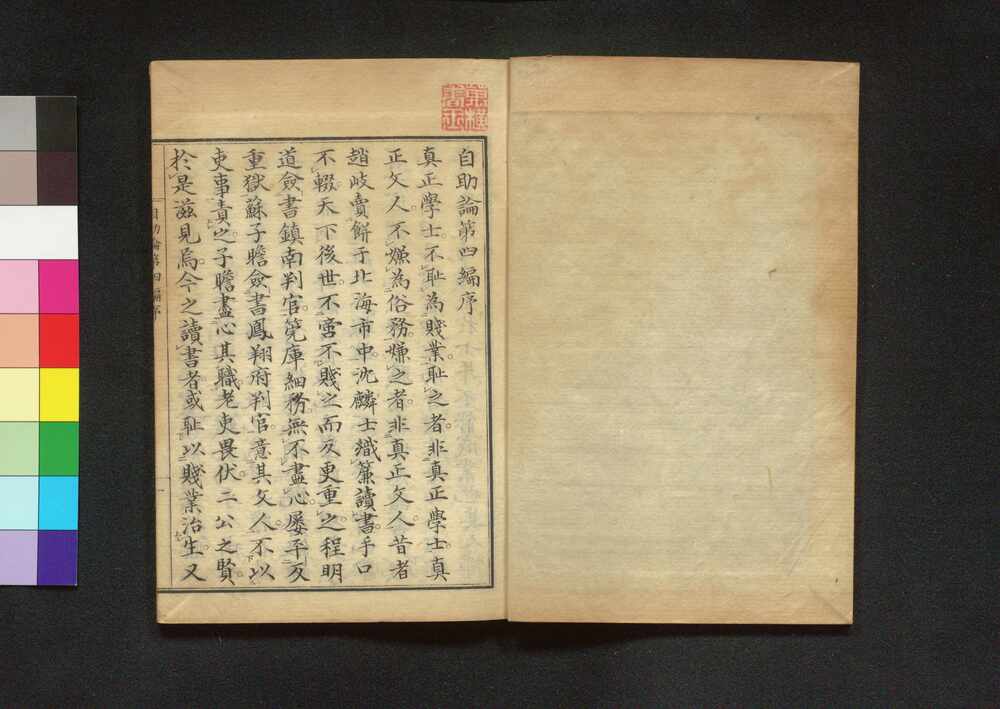 自助論第四編序
真正學士不恥為賤業恥之者非真正學士真
正文人不嫌為俗務嫌之者非真正文人昔者
趙岐賣餅于北海市中沈麟士織簾讀書手口
不輟天下後世不啻不賤之而反更重之程明
道僉書鎮南判官筦庫細務無不盡心屢平反
重獄蘇子瞻僉書鳳翔府判官意其文人不以
吏事責之子瞻盡心其職老吏畏伏二公之賢
於是滋見焉今之讀書者或恥以賤業治生又
自助論第四編序
一